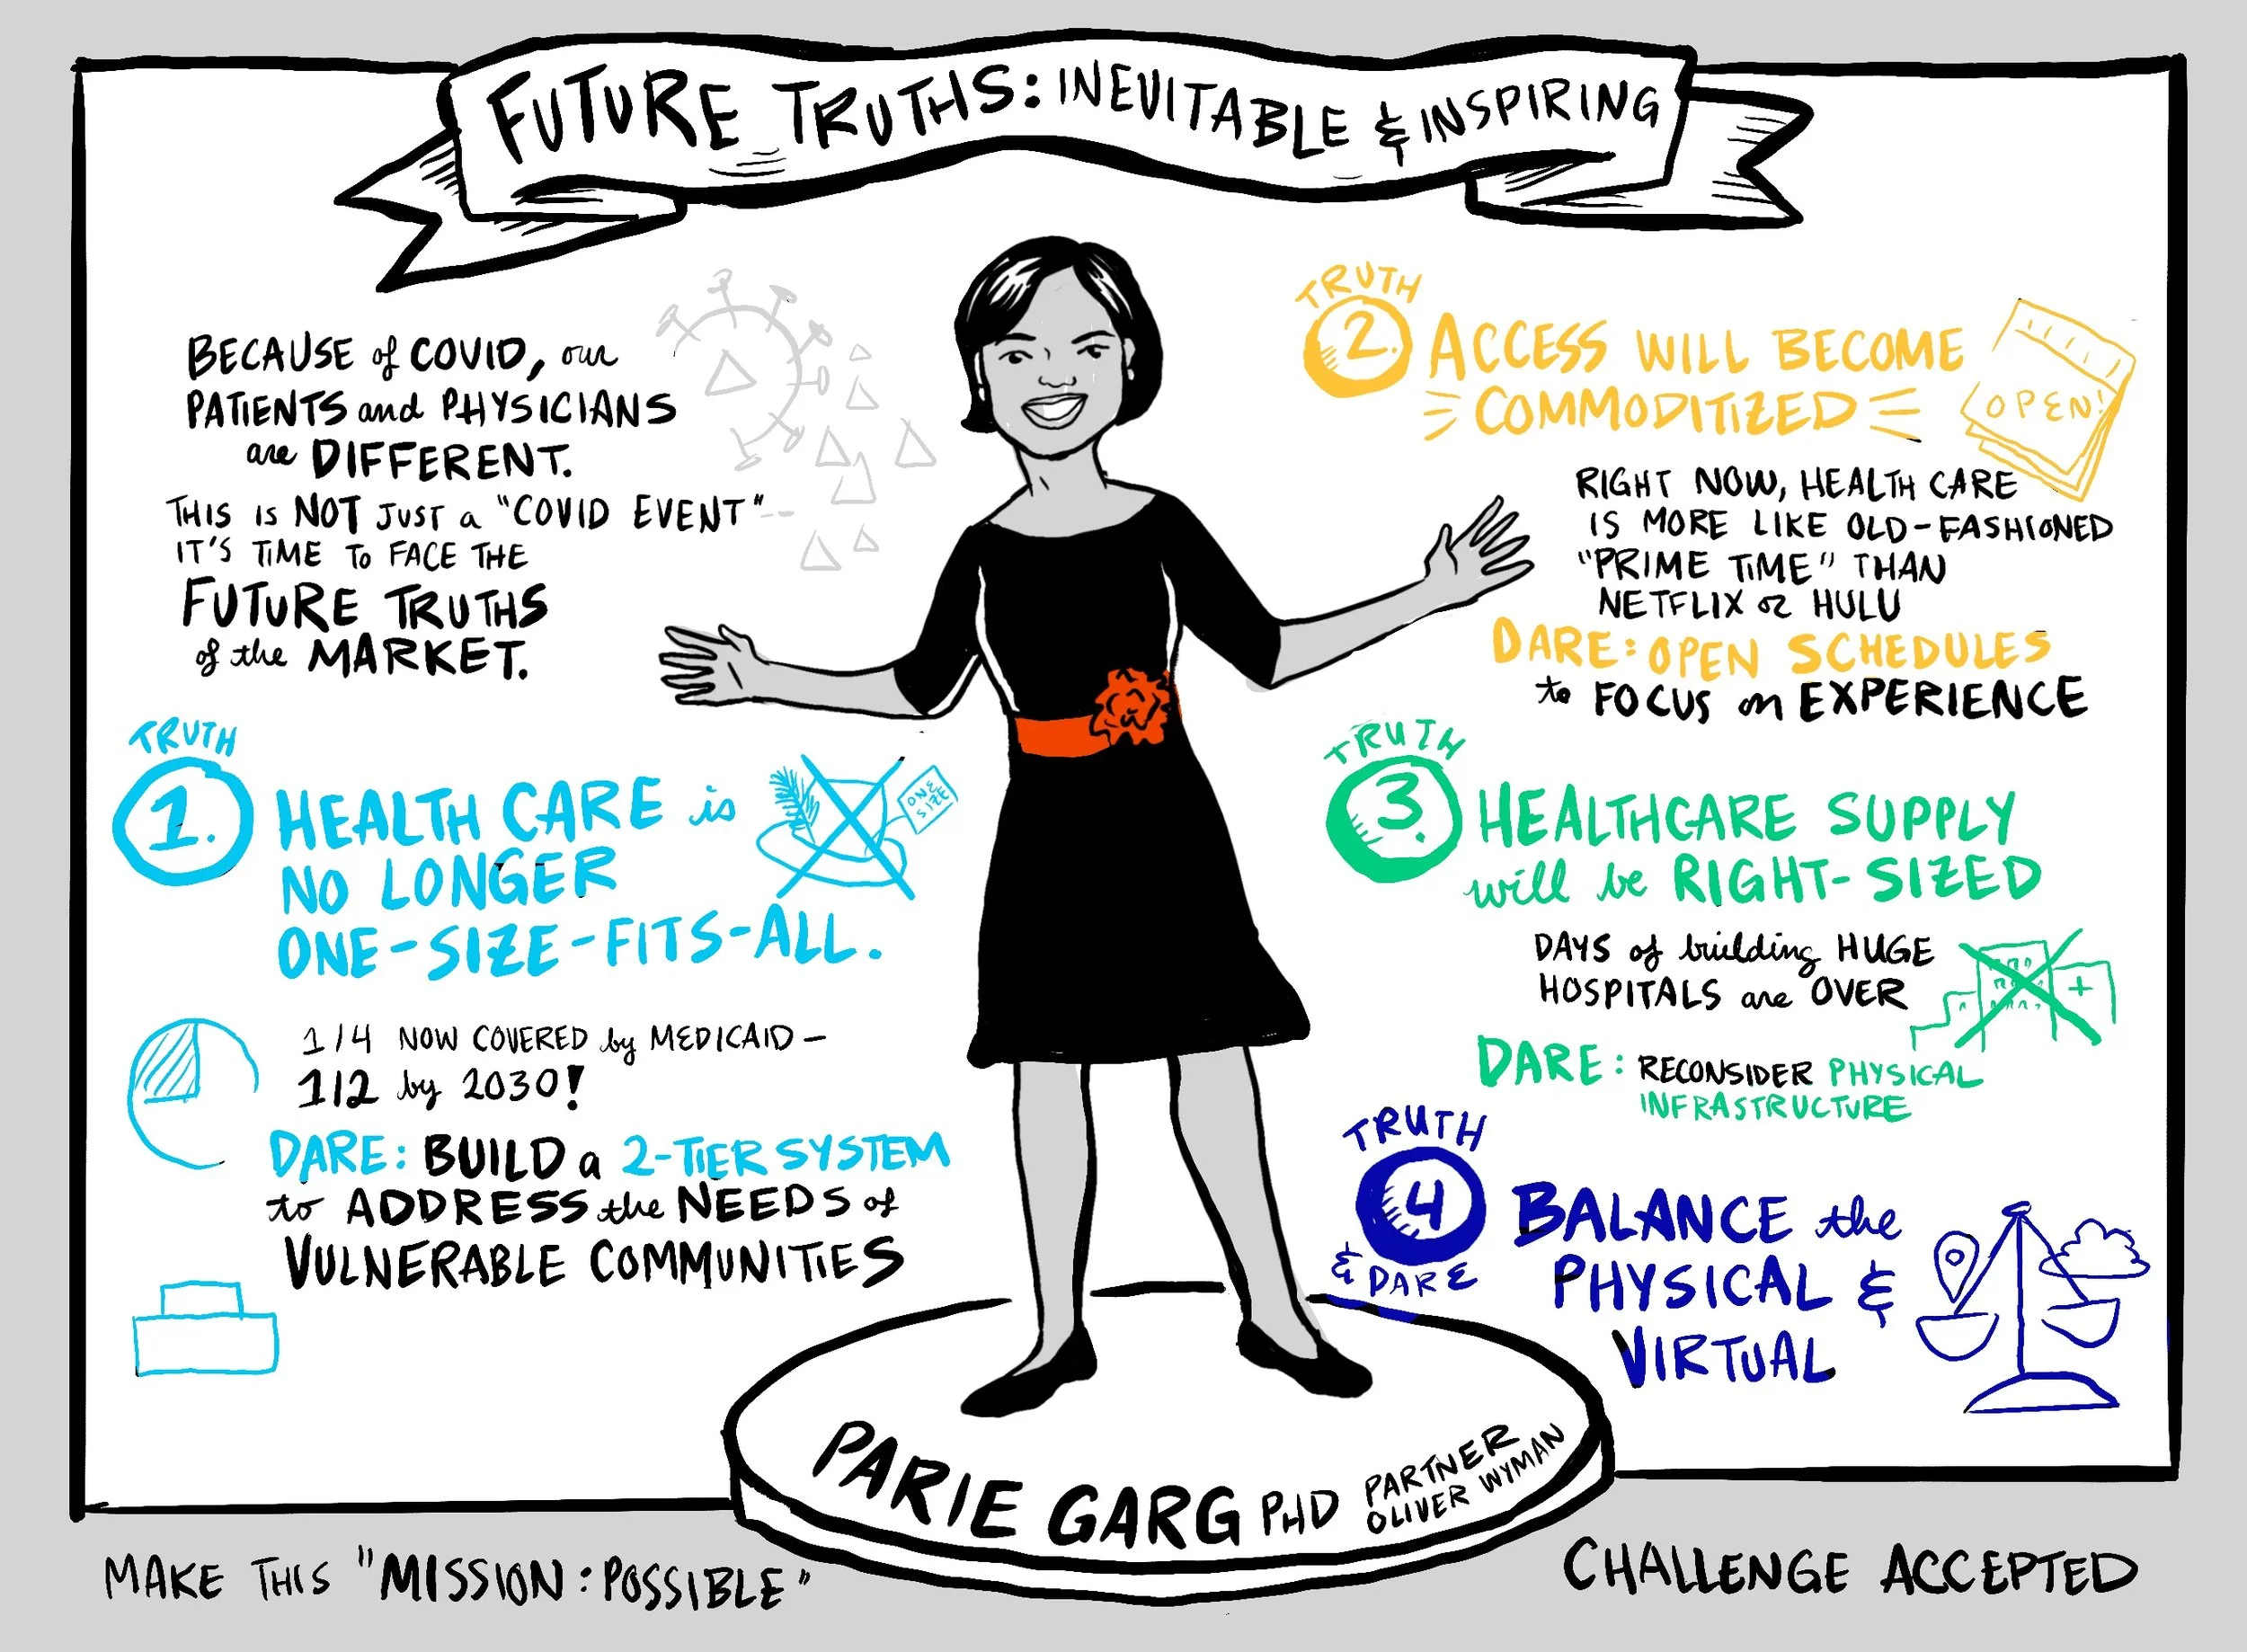 FUTURE TRUTHS: INEVITABLE & INSPIRING
BECAUSE of COVID, our
PATIENTS and PHYSICIANS
are DIFFERENT.
THIS is NOT JUST a "COVID EVENT"--
IT'S TIME To FACE THE
FUTURE TRUTHS
of the MARKET.
TRUTH
1.
HEALTH CARE is
NO LONGER
ONE-SIZE-FITS-ALL.
ONE
SIZE
1/4 NOW COVERED by MEDICAID-
1/2 by 2030!
DARE: BUILD a 2-TIER SYSTEM
to ADDRESS the NEEDS of
VULNERABLE COMMUNITIES
TRUTH
2.
ACCESS WILL BECOME
COMMODITIZED
OPEN!
RIGHT NOW, HEALTH CARE
IS MORE LIKE OLD-FASHIONED
"PRIME TIME" THAN
NETFLIX or HULU
DARE: OPEN SCHEDULES
to FOCUS on EXPERIENCE
TRUTH
3.
HEALTHCARE SUPPLY
will be RIGHT-SIZED
DAYS of building HUGE
HOSPITALS are OVER
DARE: RECONSIDER PHYSICAL
INFRASTRUCTURE
TRUTH
4
& DARE
BALANCE the
PHYSICAL &
VIRTUAL
PARIE GARG PHD
PARTNER
OLIVER WYMAN
MAKE THIS "MISSION: POSSIBLE"
CHALLENGE ACCEPTED